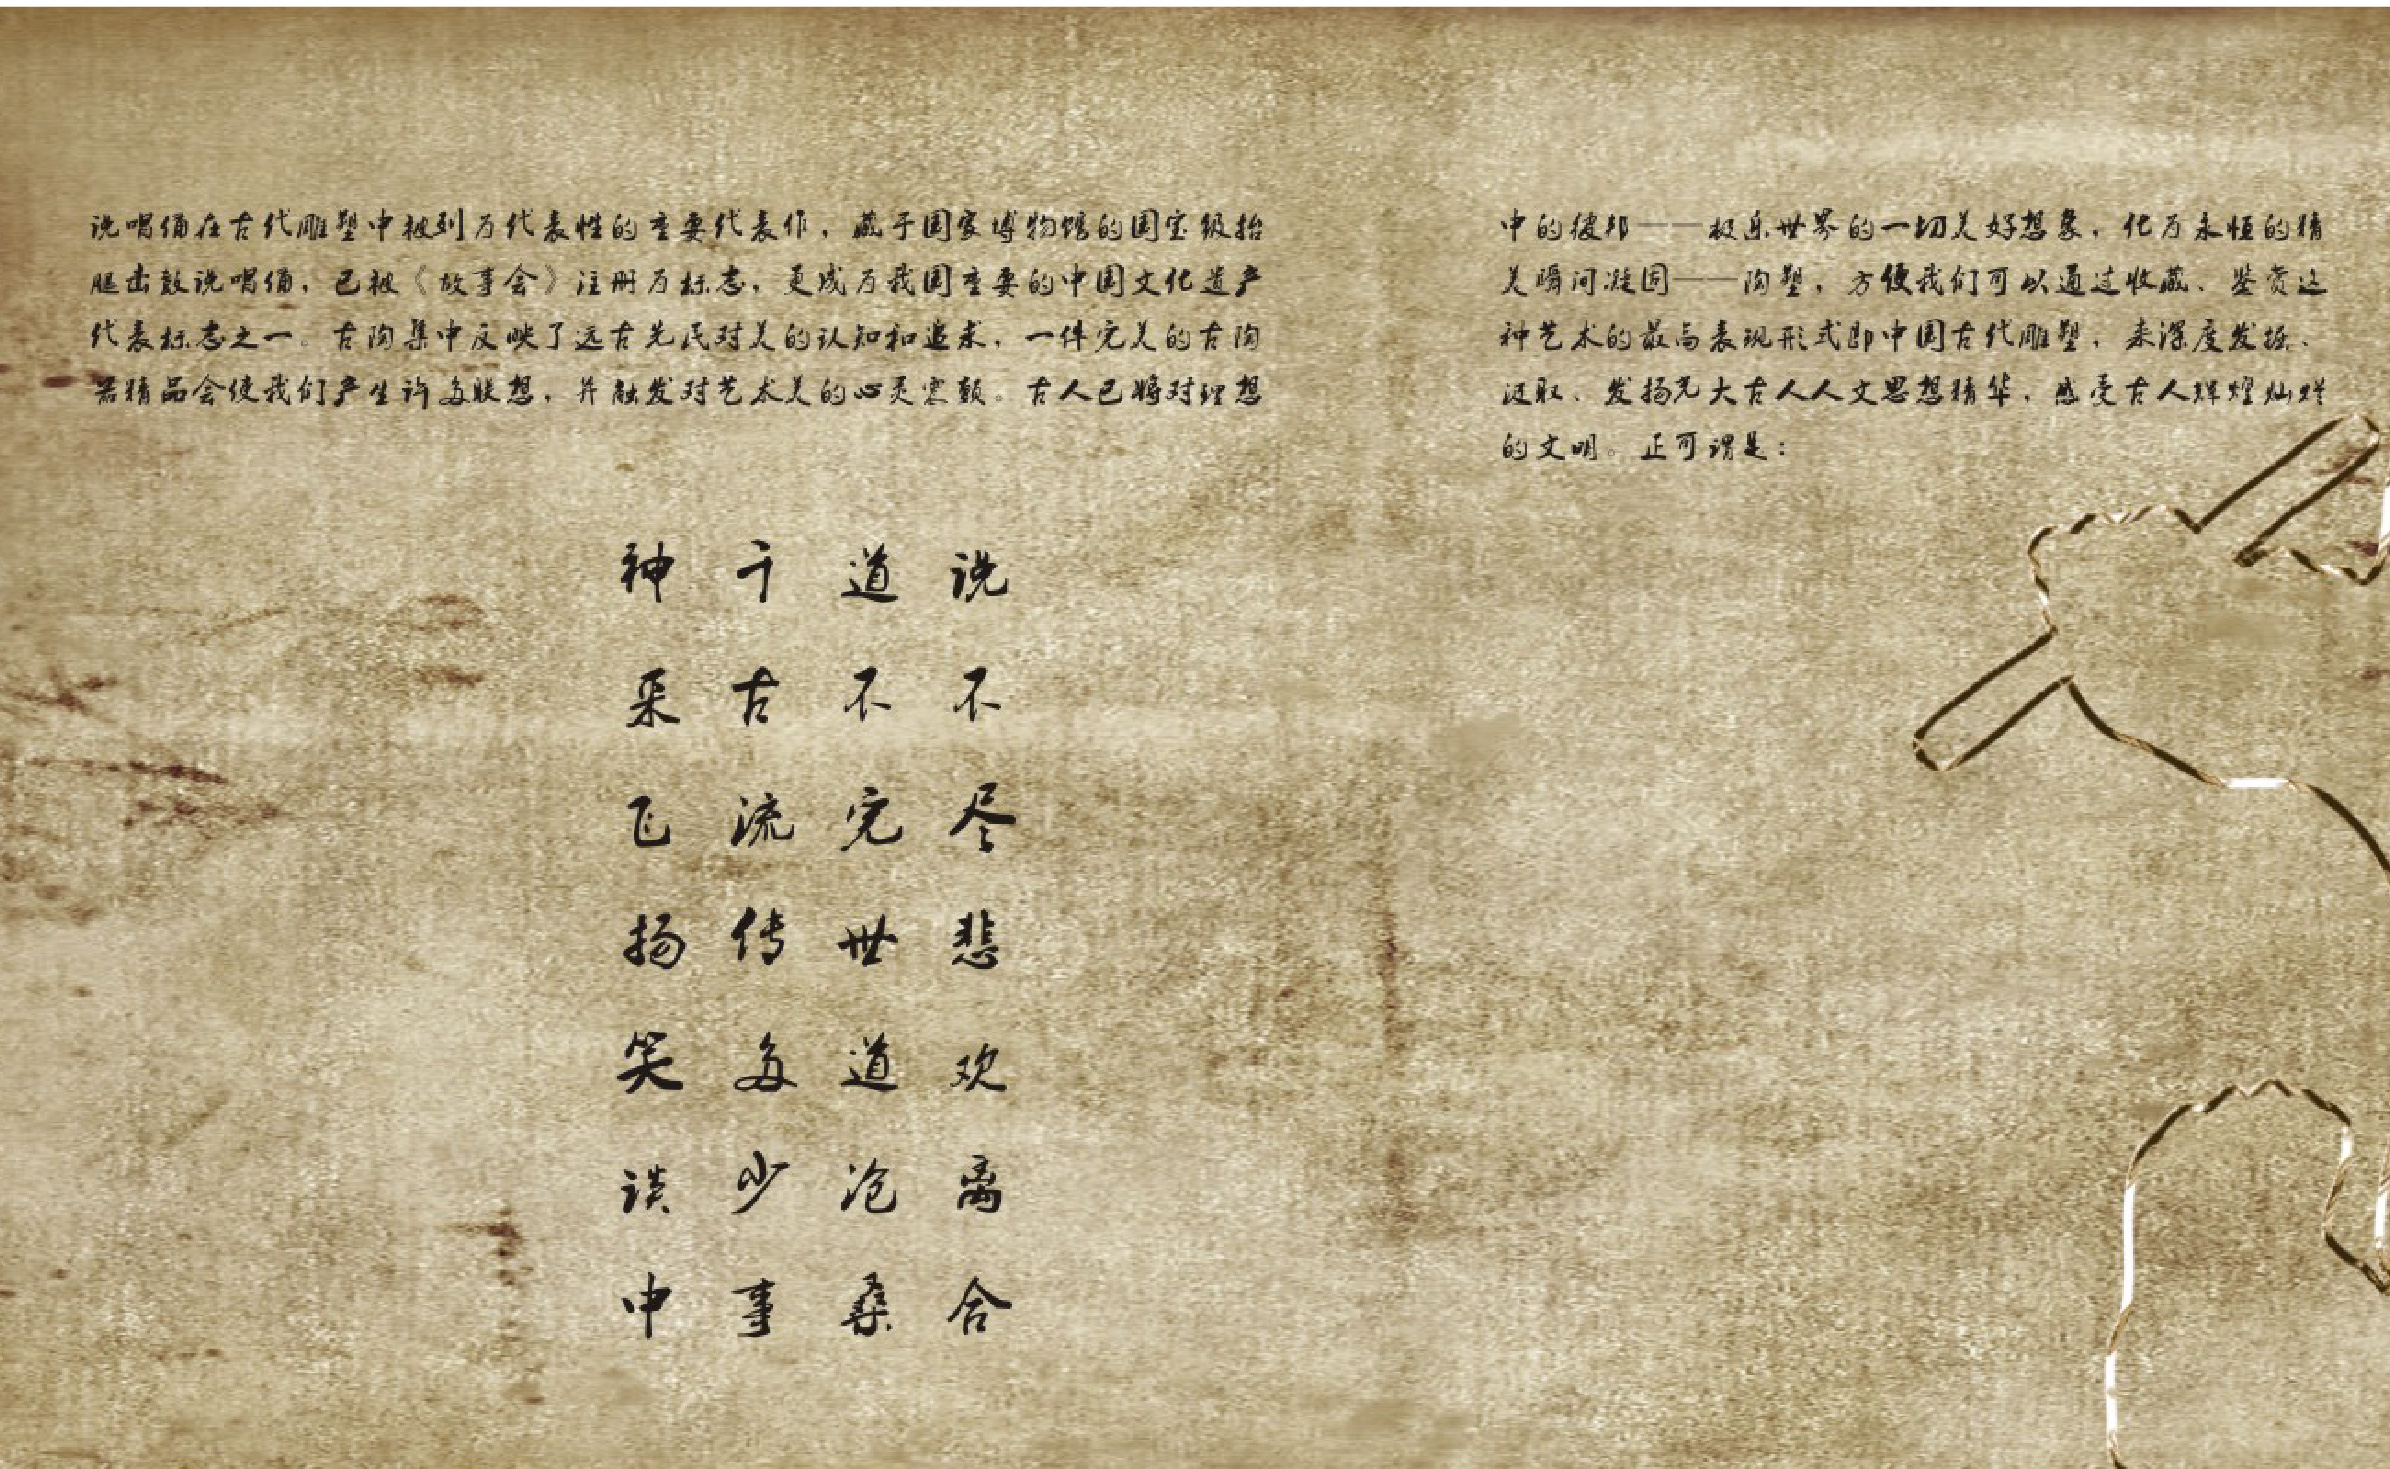 说唱俑在古代雕塑中被列为代表性的重要代表作，藏于国家博物馆的国宝级抬
腿击鼓说唱俑，已被《故事会》注册为标志，更成为我国重要的中国文化遗产
代表标志之一。古陶集中反映了远古先民对美的认知和追求，一件完美的古陶
器精品会使我们产生许多联想，并触发对艺术美的心灵震颤。古人已将对理想
中的彼邦——极乐世界的一切美好想象，化为永恒的精
美瞬间凝固——陶塑，方便我们可以通过收藏、鉴赏这
种艺术的最高表现形式即中国古代雕塑，来深度发掘、
汲取、发扬光大古人人文思想精华，感受古人辉煌灿烂
的文明。正可谓是：
说不尽悲欢离合
道不完世道沧桑
千古流传多少事
神采飞扬笑谈中